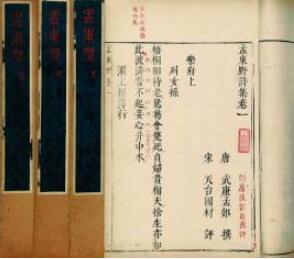 孟東野詩集卷一
唐 武康孟郊 撰
宋 天台國材 評
樂府上
列女操
梧桐相待老鴛鴦會雙死貞婦貴徇夫捨生亦如
此波濤誓不起妾心井中水
灞上輕薄行
孟東野
孟東野
孟東野